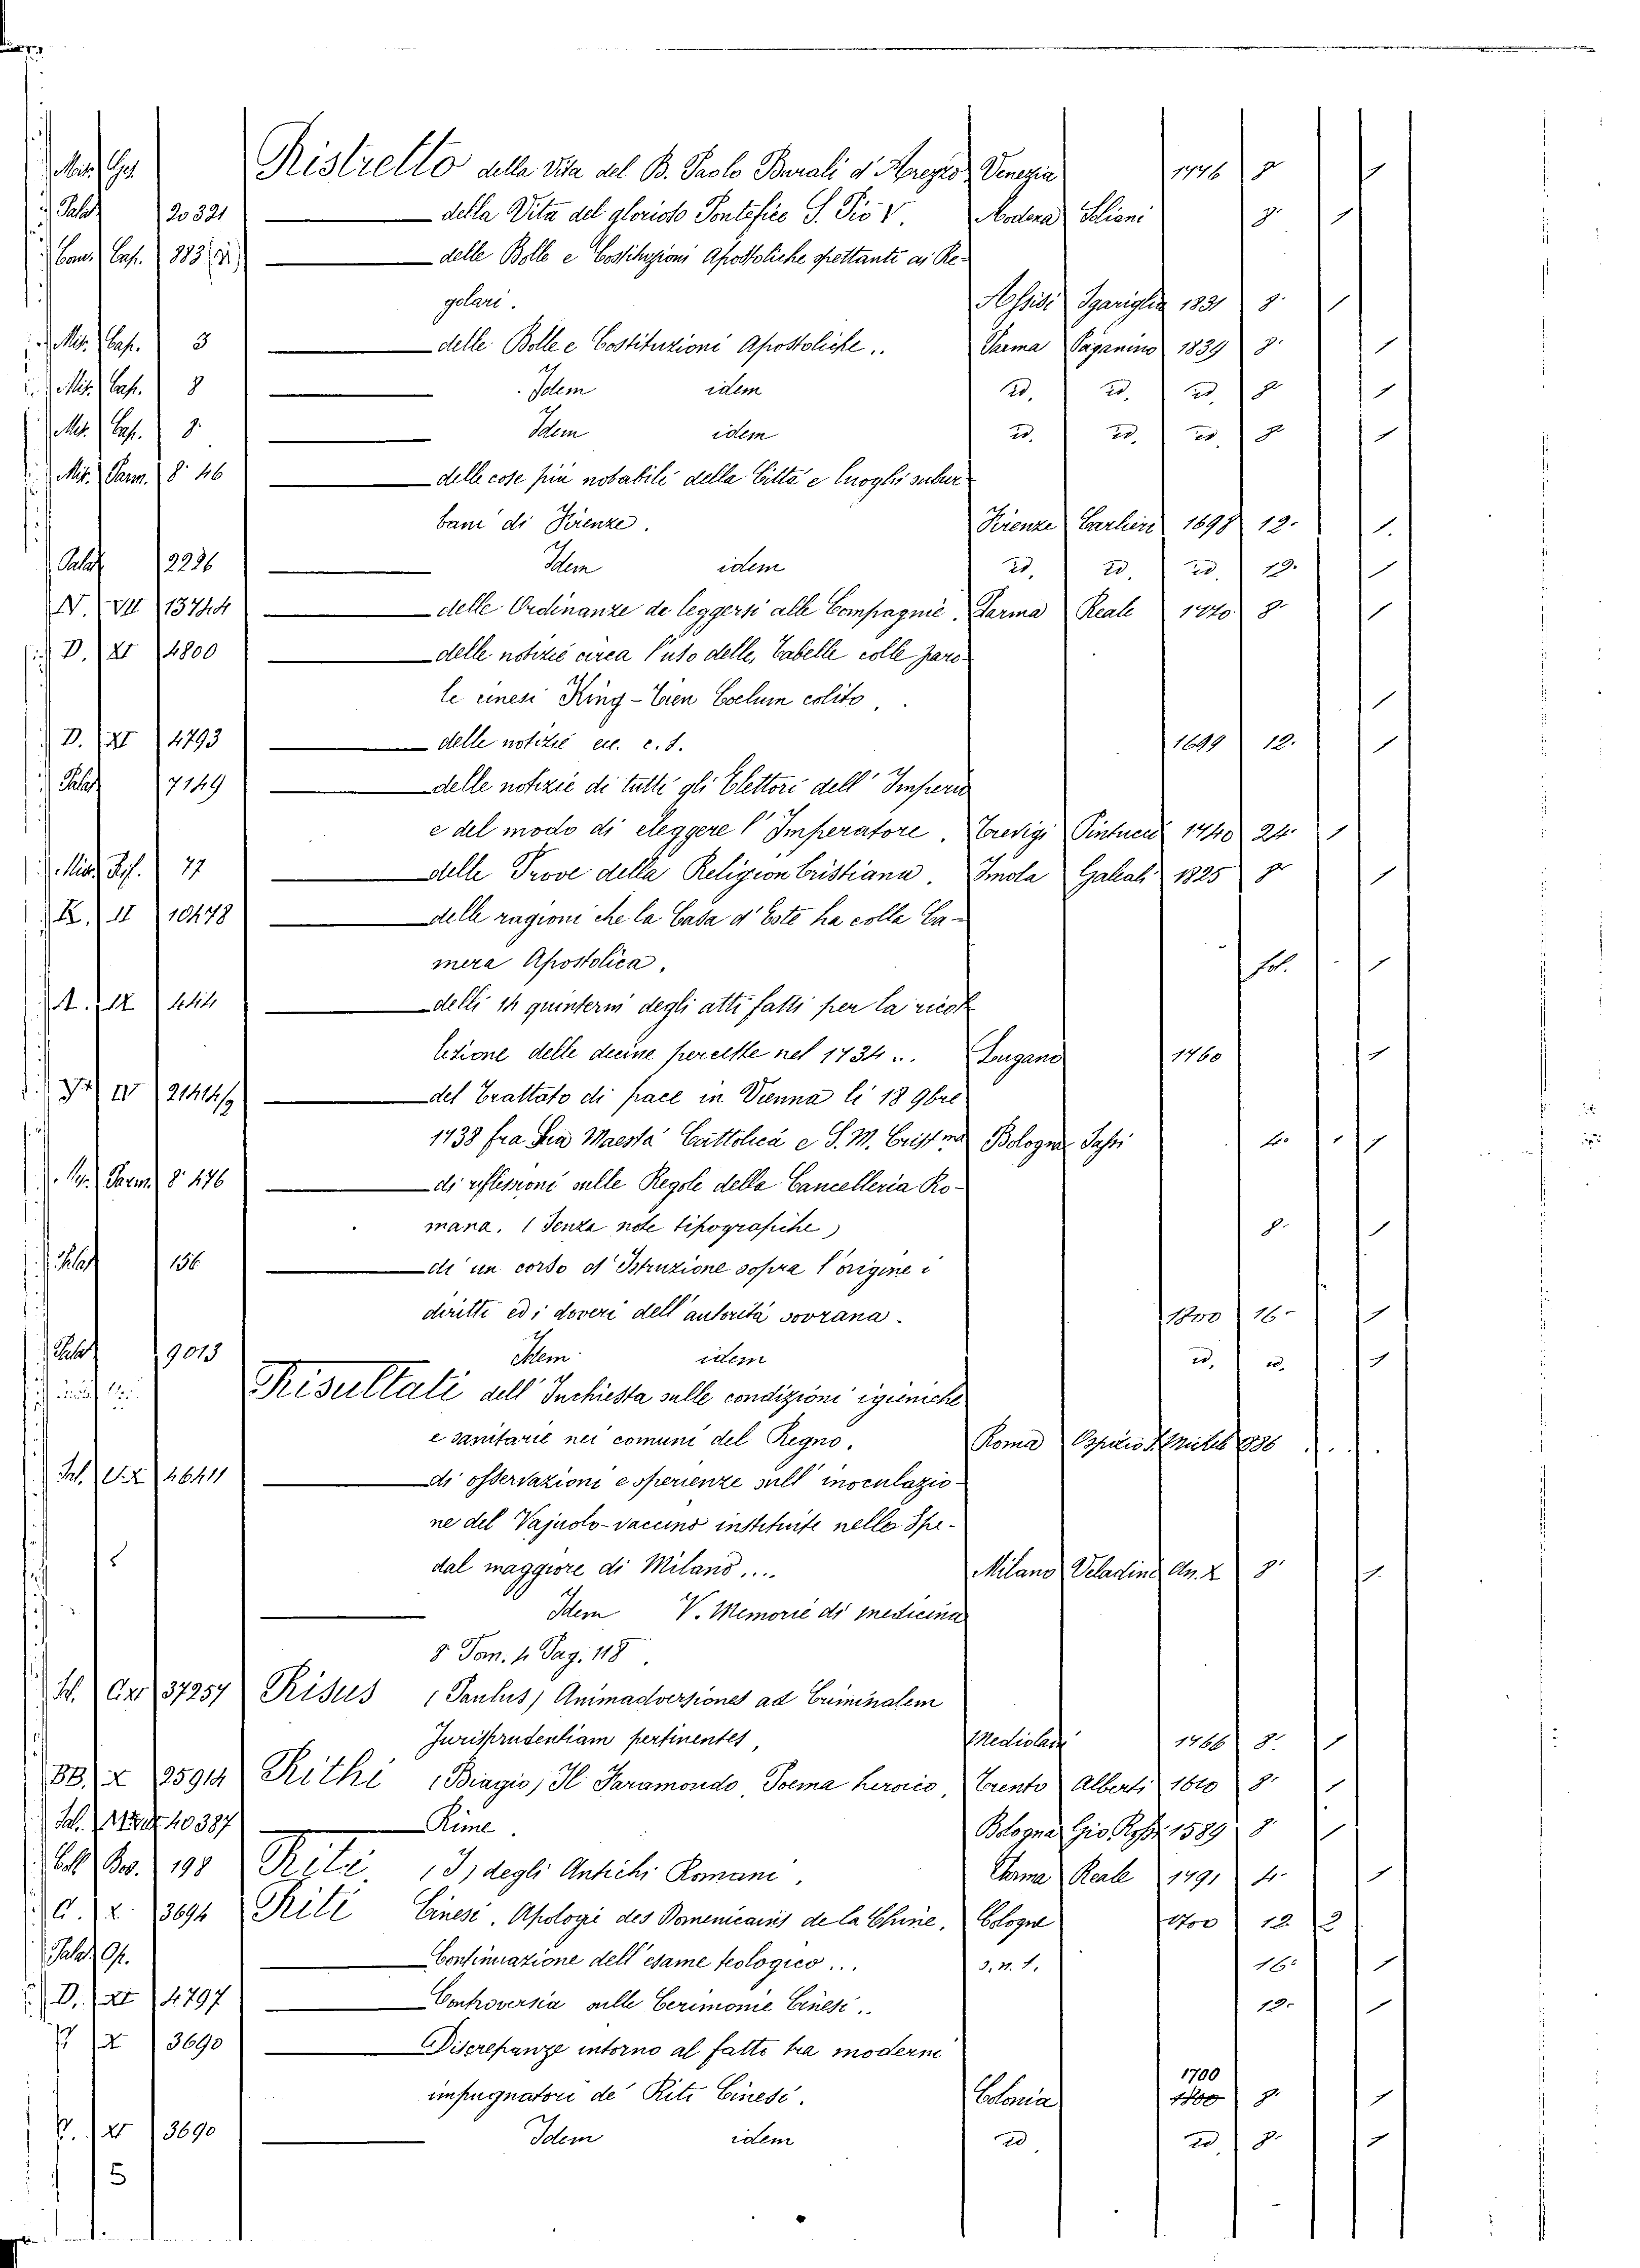 Ristretto della Vita del B. Paolo Burali d'Arezzo Venezia 1776 8
Palat 20321 della Vita del glorioso Pontefice S. Pio V. Modena Soliani 8
Conv. Cap. 883 delle Bolle e Costituzioni Apostoliche spettanti ai Re-
golari. Assisi Sgariglia 1831 8
Mis. Cap. 3 delle Bolle e Costituzioni Apostoliche.. Parma Paganino 1839 8 1
Mis. Cap. 8 Idem idem id. id. id. 8 1
Mis. Cap. 8 Idem idem id. id. id. 8 1
Mis. Parm. 8° 46 delle cose più notabili della Città e luoghi subur-
bani di Firenze. Firenze Carlieri 1698 12. 1.
Palat 2236 Idem idem id. id. id. 12. 1
N. VII 13744 delle Ordinanze da leggersi alle Compagnie. Parma Reale 1770 8 1
D. XI 4800 delle notizie circa l'uso delle, Tabelle colle paro-
le cinesi King-Tien Coelum colito. 1
D. XI 4793 delle notizie ecc. c. s. 1699 12. 1
Palat 7149 delle notizie di tutti gli Elettori dell' Imperio
e del modo di eleggere l' Imperatore. Trevigi 1740 24 1
Mis. Rif. 77 delle Prove della Religion Cristiana. Imola Galeati 1825 8 1
K. II 10478 delle ragioni che la Casa d'Este ha colla Ca-
mera Apostolica. fol. 1
A. IX delli 14 quinterni degli atti fatti per la ricol-
lezione delle decime percette nel 1734... Lugano 1760 1
IV del Trattato di pace in Vienna li 18 9bre
1738 fra Sua Maestà Cattolica e S. M. Crist.ma Bologna Sassi 4o 1
Parm. 8° 476 di riflessioni sulle Regole della Cancelleria Ro-
mana. (Senza note tipografiche) 8. 1
Palat 156 di un corso d'Istruzione sopra l'origine i
diritti ed i doveri dell' autorità sovrana. 1800 16 1
Palat 9013 Idem idem id. id. 1
Risultati dell' Inchiesta sulle condizioni igieniche
e sanitarie nei comuni del Regno. Roma Ospizio S. Michele 1886
di osservazioni e sperienze sull' inoculazio-
ne del Vajuolo-vaccino instituite nello Spe-
dal maggiore di Milano.... Milano Veladini An. X 8 1.
Idem V. Memorie di medicina
8 Tom. 4 Pag. 118.
37257 Risus (Paulus) Animadversiones ad Criminalem
Jurisprudentiam pertinentes, Mediolani 1766 8. 1
BB. X 25914 Rithi (Biagio) Il Faramondo Poema heroico, Trento Alberti 1610 8 1
40387 Rime. Bologna Gio. Rossi 1589 8 1
Coll. Bod. 198 Riti (I) degli Antichi Romani. Parma Reale 1791 4 1
C. X. 3694 Riti Cinesi. Apologi des Domenicains de la Chine, Cologne 1700 12. 2
Palat Op. Continuazione dell' esame teologico... s. n. t. 16. 1
D. XI 4797 Controversia sulle Cerimonie Cinesi.. 12. 1
X 3690 Discrepanze intorno al fatto tra moderni
impugnatori de' Riti Cinesi. Colonia 1700 1800 8 1
XI 3690 Idem idem id. id. 8. 1
5